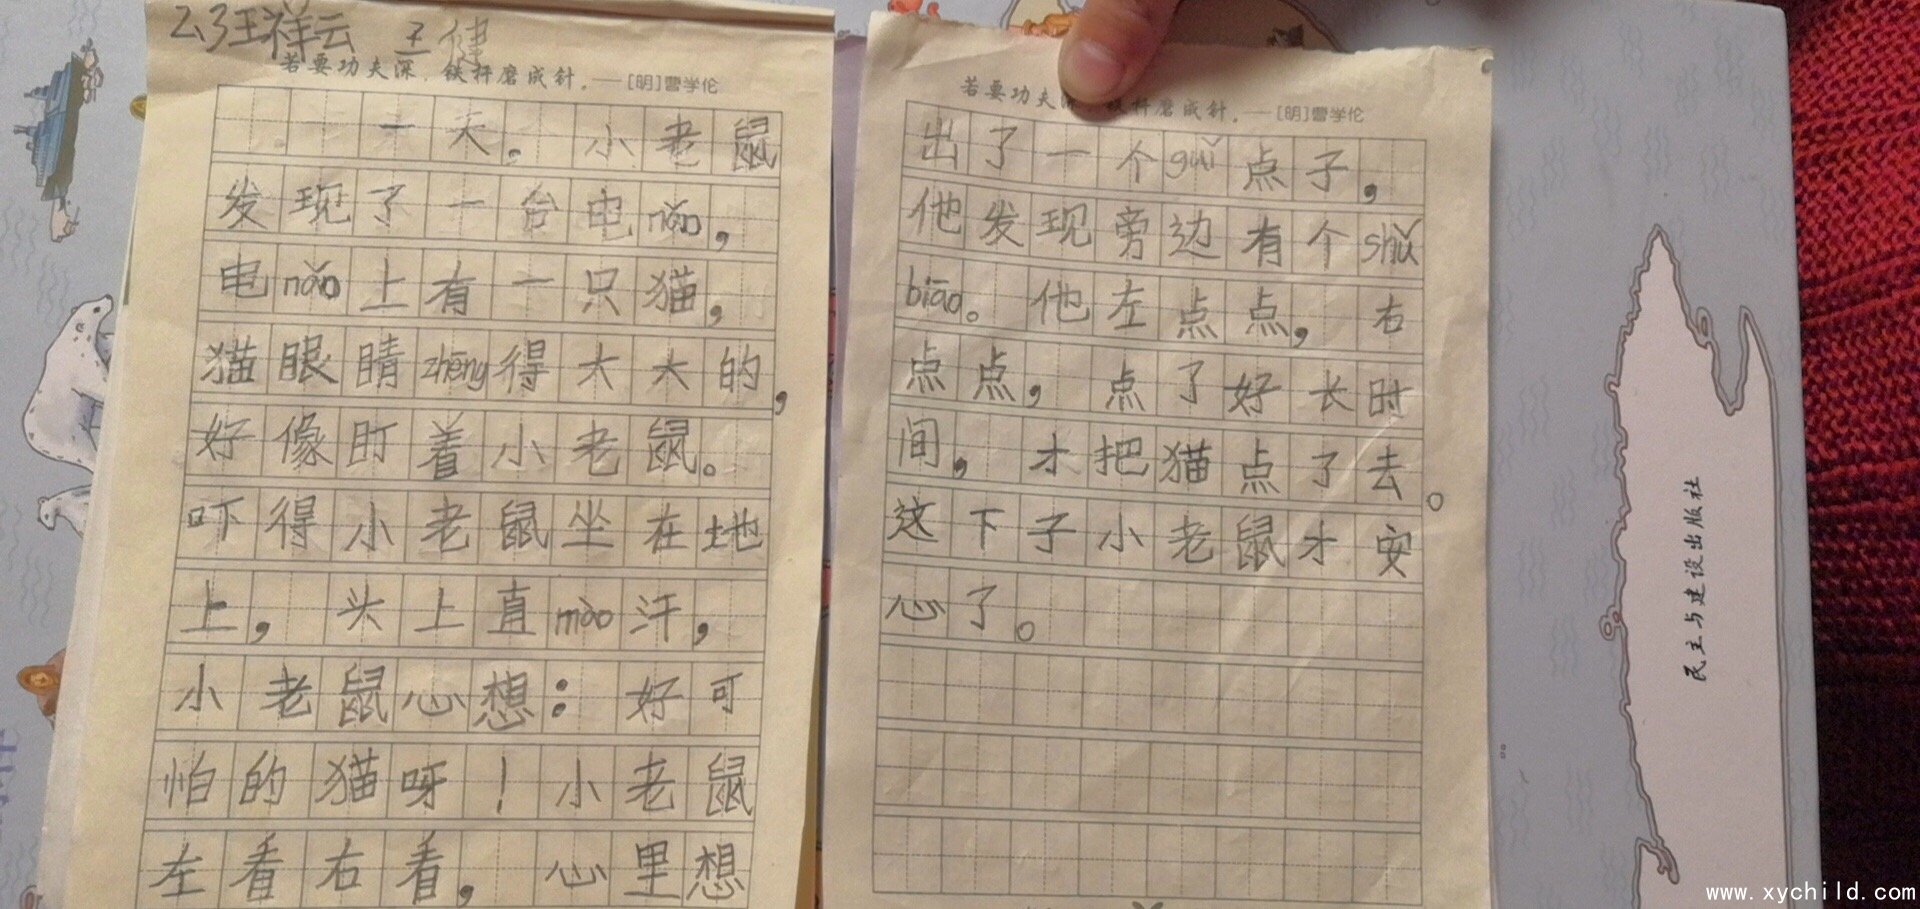 2.3班祥云 王健
若要功夫深，铁杵磨成针。——[明]曹学伦
一天。小老鼠
发现了一台电nǎo，
电nǎo上有一只猫，
猫眼睛zhēng得大大的，
好像盯着小老鼠。
吓得小老鼠坐在地
上，头上直mào汗，
小老鼠心想：好可
怕的猫呀！小老鼠
左看右看，心里想
若要功夫深，铁杵磨成针。——[明]曹学伦
出了一个guǐ点子，
他发现旁边有个shǔ
biāo。他左点点，右
点点，点了好长时
间，才把猫点了去。
这下子小老鼠才安
心了。
民主与建设出版社
www.xychild.com